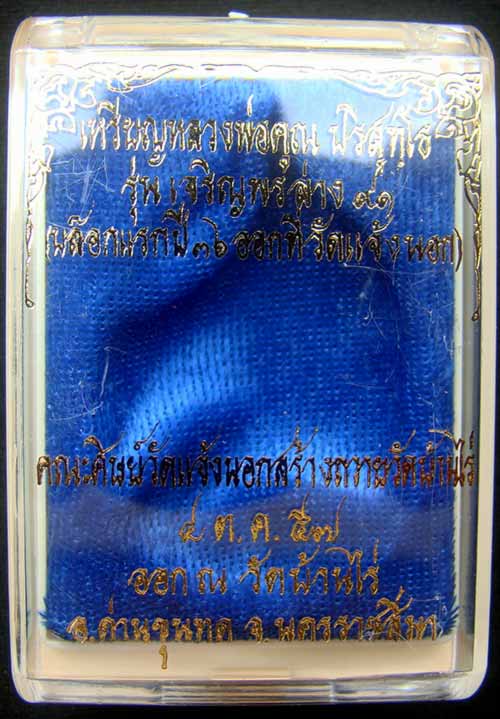 เหรียญหลวงพ่อคูณ ปริสุทโธ
รุ่น เจริญพรล่าง ๙๑
(บล็อกแรกปี ๓๖ ออกที่วัดแจ้งนอก)
คณะศิษย์วัดแจ้งนอกสร้างถวายวัดบ้านไร่
๔ ต.ค. ๕๗
ออก ณ วัดบ้านไร่
อ.ด่านขุนทด จ.นครราชสีมา